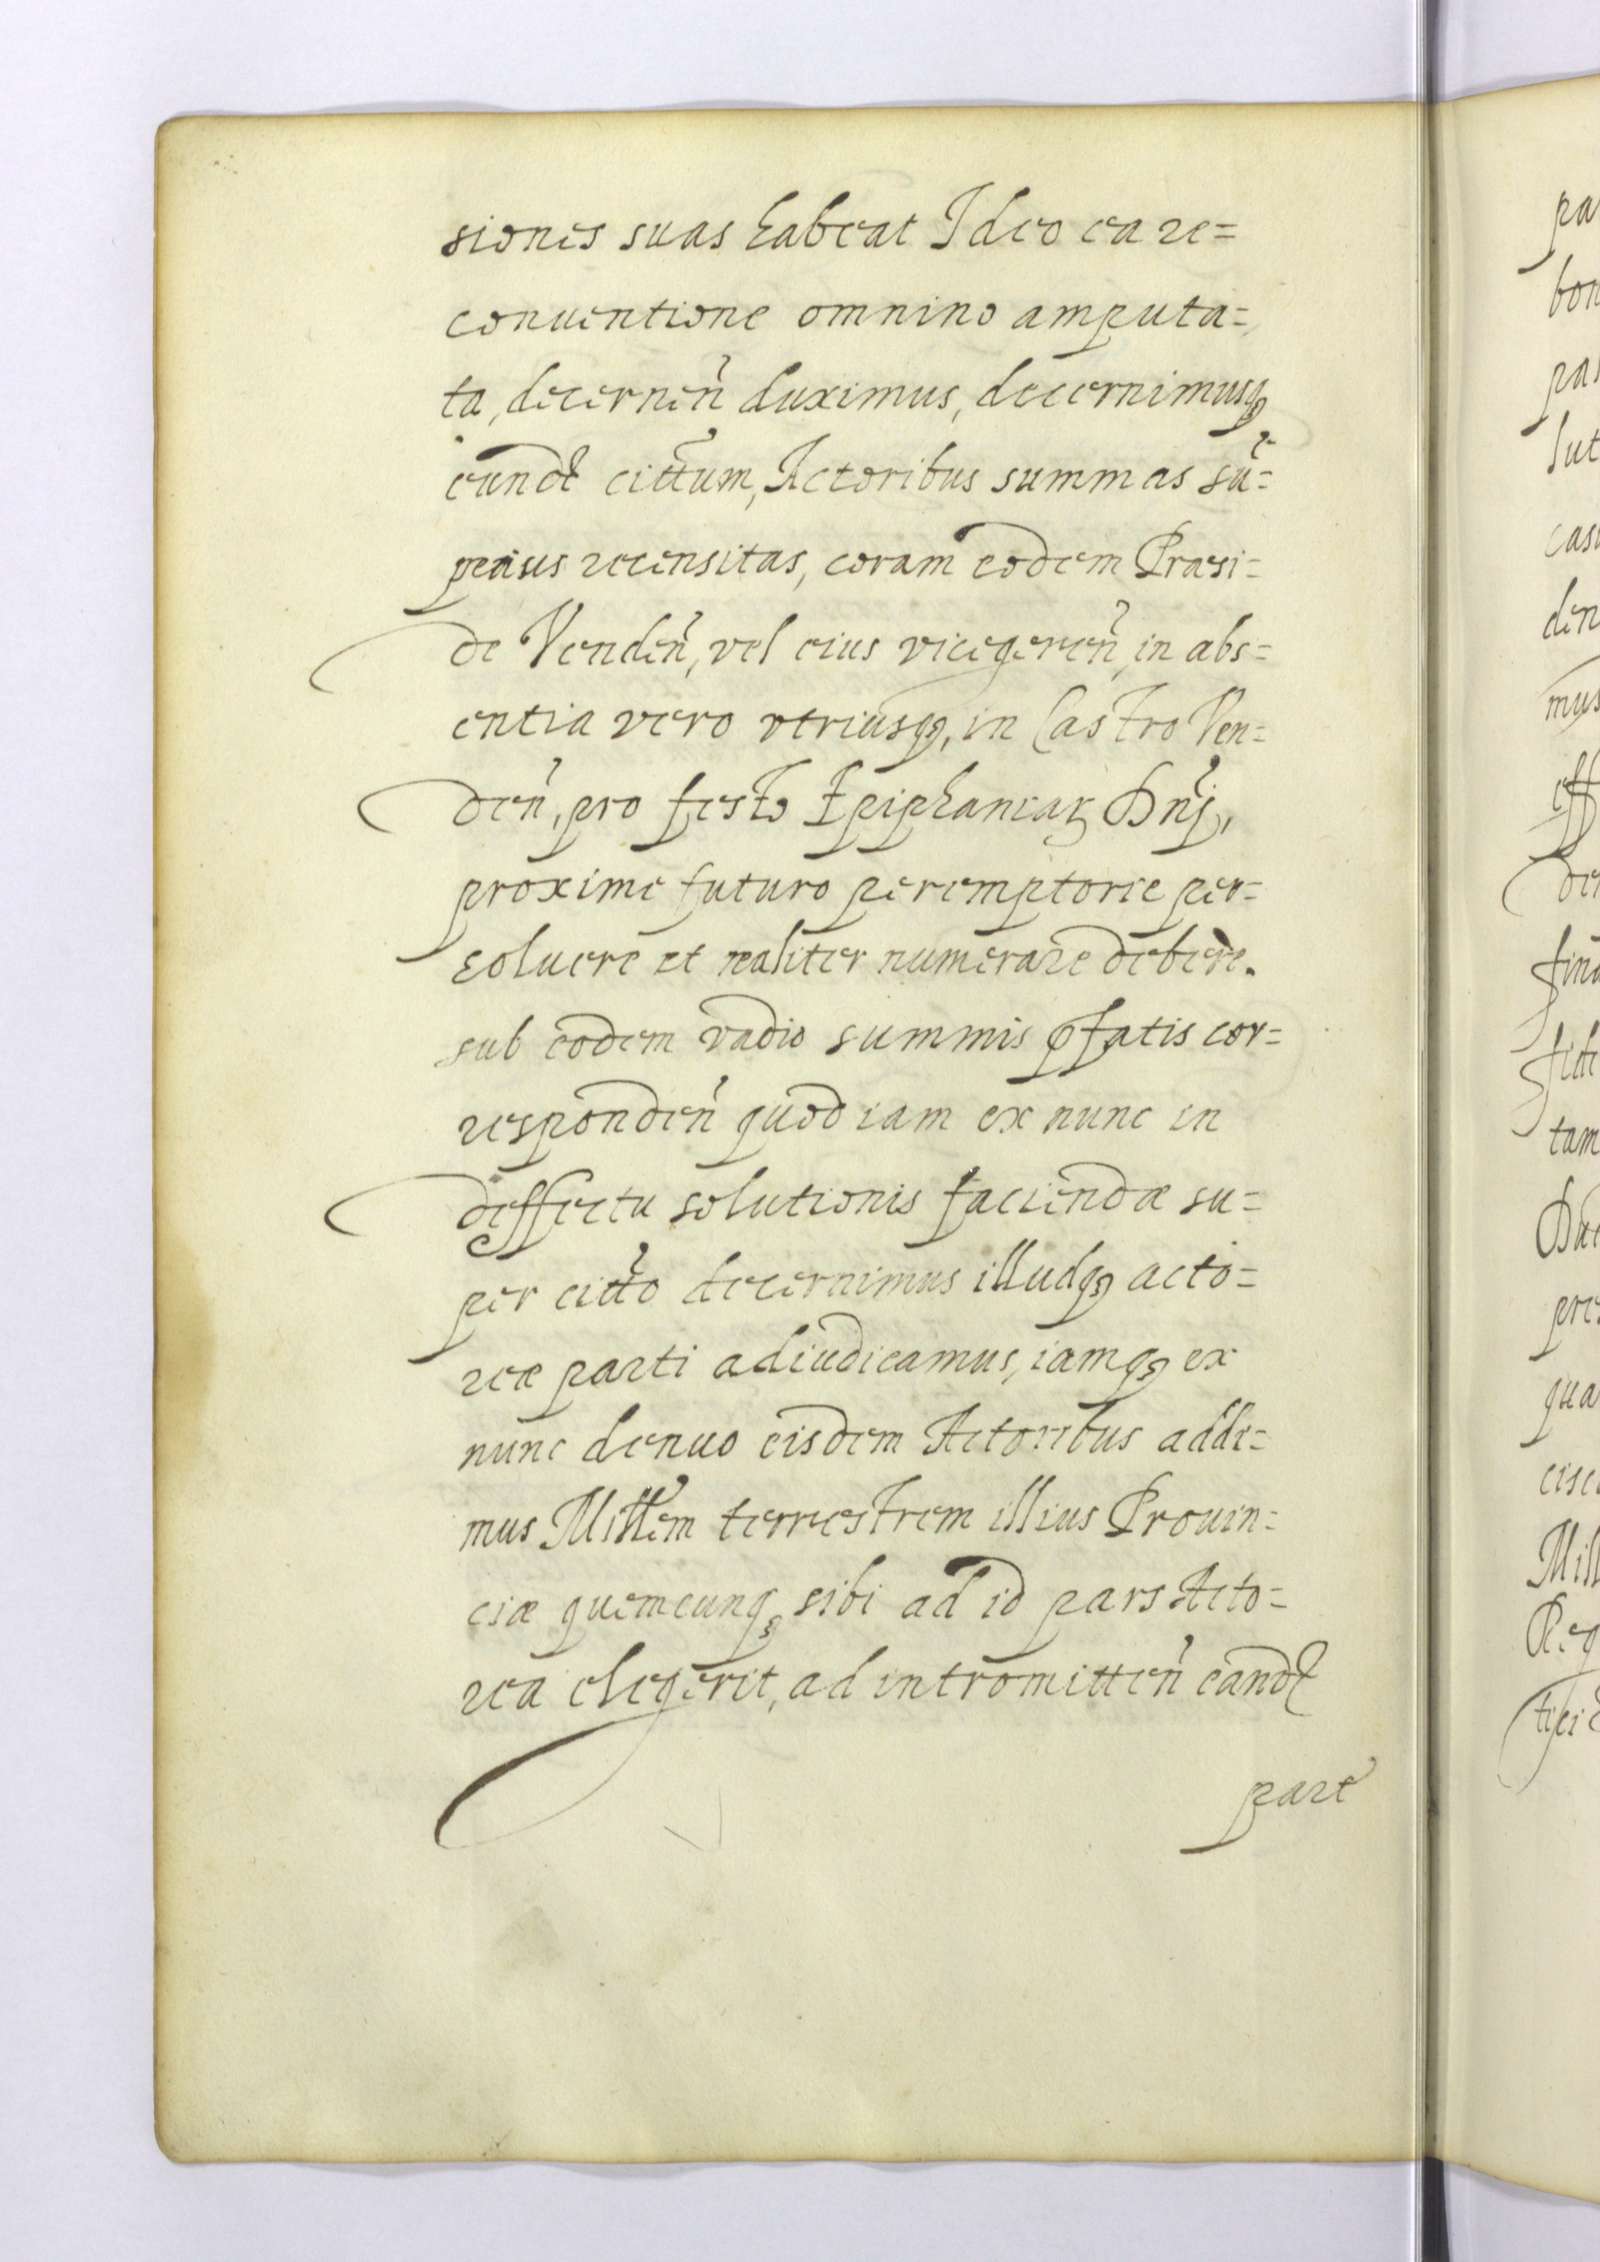 siones suas habeat Ideo ea re=
conuentione omnino amputa=
ta, decernen̄ duximus, decernimusq3
eund̄ citt̄um, Actoribus summas su=
perius recensitas, coram eodem Præsi=
de Venden̄, vel eius vicegeren̄, in abs=
entia vero vtriusq3, in Castro Ven=
den̄, pro festo Epiphaniaꝝ Dn̄j,
proxime futuro peremptorie per=
soluere et realiter numerare debere.
sub eodem vadio summis p̄fatis cor=
responden̄ quod iam ex nunc in
deffectu solutionis faciendæ su=
per citt̄o decernimus illudq3 acto=
reæ parti adiudicamus, iamq3 ex
nunc denuo eisdem Actoribus addi=
mus Mill̄em terrestrem illius Prouin=
ciæ quemcunq3 sibi ad id pars Acto=
rea elegerit, ad intromitten̄ eand̄
part
pa
bon
pas
lut
cas
den
mus
eff
de
fin
fide
tam
pre
qua
cisc
Mill
Reg